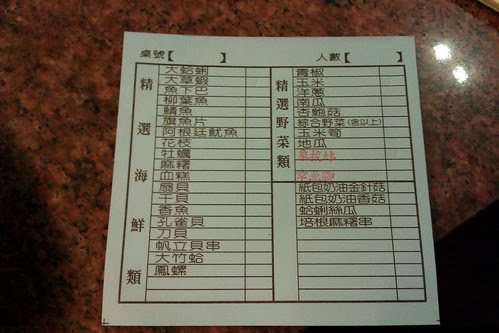 桌號【 】 人數【 】
精選海鮮類
大蛤蜊
大草蝦
魚下巴
柳葉魚
鯖魚
旗魚片
阿根廷魷魚
花枝
牡蠣
麻糬
血糕
扇貝
干貝
香魚
孔雀貝
刀貝
帆立貝串
大竹蛤
鳳螺
精選野菜類
青椒
玉米
洋蔥
南瓜
杏鮑菇
綜合野菜(含以上)
玉米筍
地瓜
紙包奶油金針菇
紙包奶油香菇
蛤蜊絲瓜
培根麻糬串